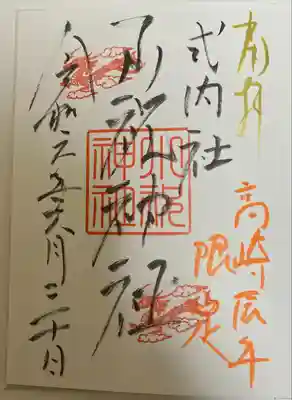 奉拝
高崎辰年
限定
式内社
小祝神社
小祝
神社
令和六年六月二十日